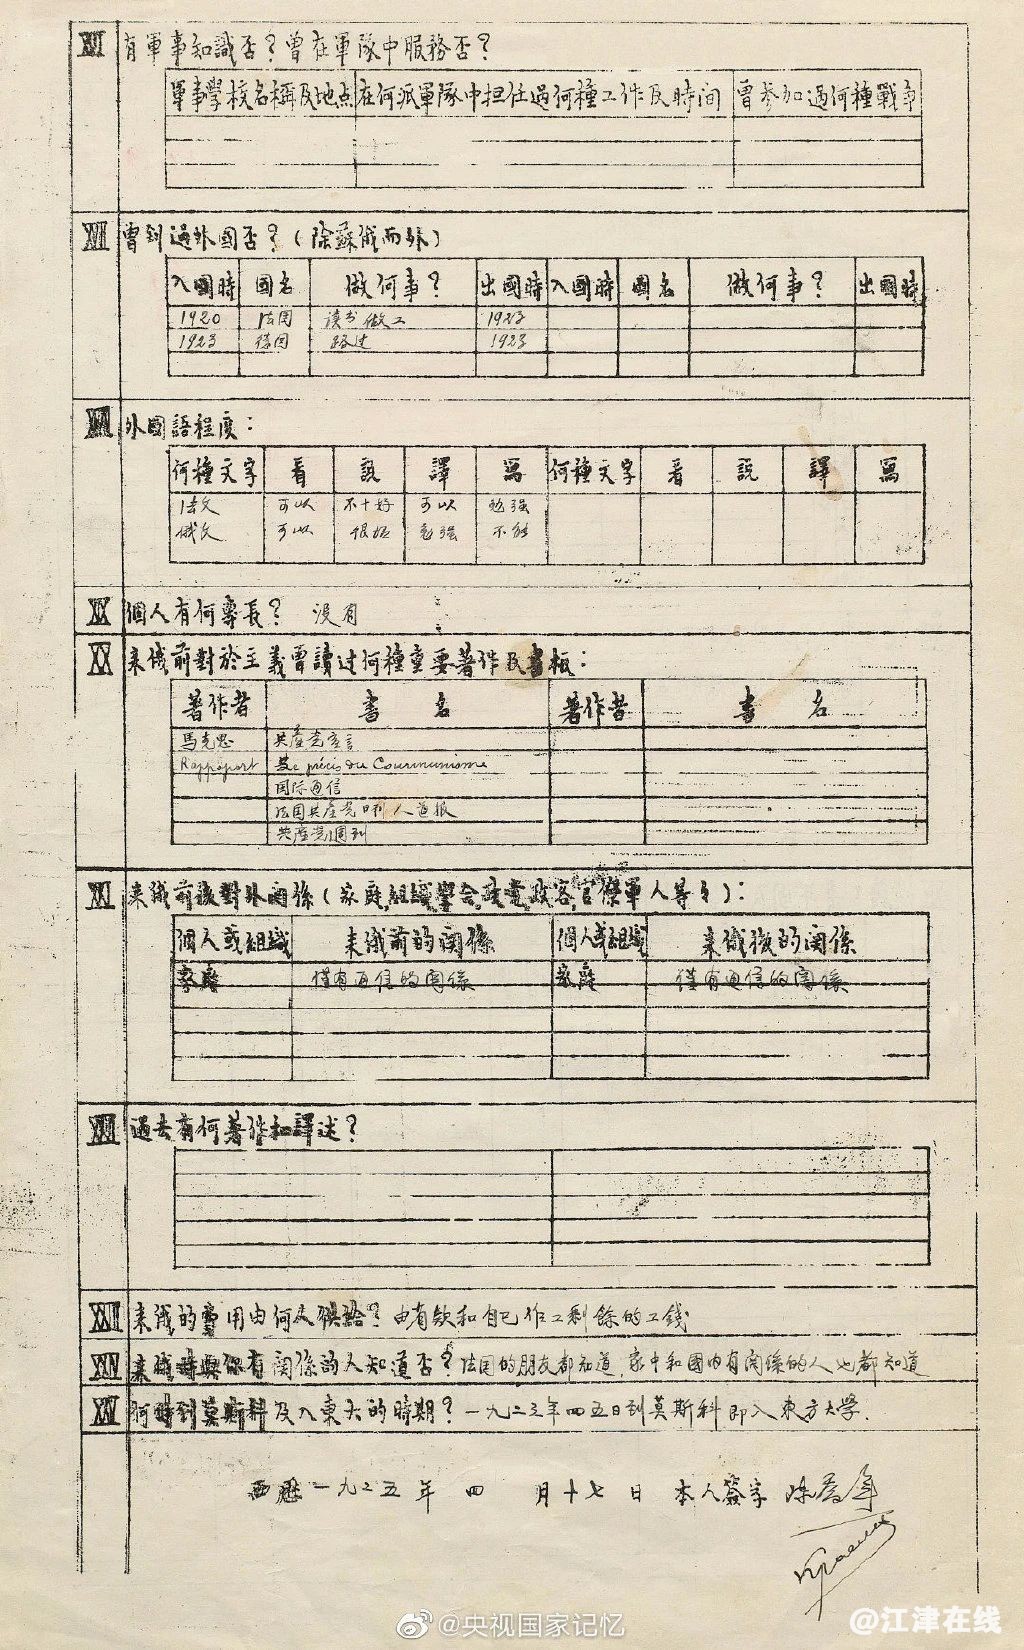 XVI 有軍事知識否？曾在軍隊中服務否？
軍事學校名稱及地点 在何派軍隊中担任過何種工作及時间 曾参加過何種戰争
XVII 曾到過外國否？（除蘇俄而外）
入國時 國名 做何事？ 出國時 入國時 國名 做何事？ 出國時
1920 法国 读书做工 1923
1923 德国 路过 1923
XVIII 外國語程度：
何種文字 看 説 譯 寫 何種文字 看 説 譯 寫
法文 可以 不十好 可以 勉强
俄文 可以 很坏 勉强 不能
XIX 個人有何專長？ 没有
XX 来俄前對於主義曾讀过何種重要著作及書板：
著作者 書名 著作者 書名
馬克思 共產党宣言
Rappoport précis du Communisme
国际通信
法国共產党 人道报
共產党週刊
XXI 来俄前後對外関係（家庭,組織,學会,政党,政客,官僚軍人等々）：
個人或組織 来俄前的関係 個人或組織 来俄後的関係
家庭 僅有通信的関係 家庭 僅有通信的関係
XXII 過去有何著作和譯述？
XXIII 来俄的費用由何人供給？ 由 和自己作工剩餘的工錢
XXIV 来俄時與你有関係的人知道否？ 法国的朋友都知道，家中和國内有関係的人也都知道
XXV 何時到莫斯科及入東大的時期？ 一九二三年四五日到莫斯科即入東方大學.
西歷一九二五年 四 月十七日 本人簽字 陈喬年
@央视国家记忆
@江津在线